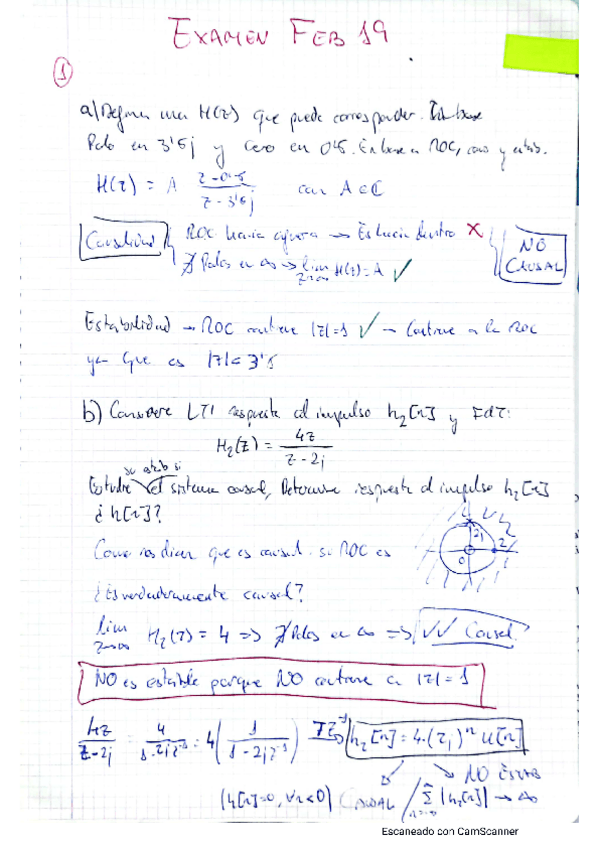 EXAMEN FEB 19
①
a) Defina una H(z) que puede corresponder.
Polo en 3'5j y Cero en 0'5. En base a ROC, caus y estab.
H(z) = A (z-0'5)/(z-3'5j) con A∈ℂ
Causalidad { ROC hacia afuera → Es hacia dentro X
∄ Polos en ∞ → lim z→∞ H(z) = A ✓ } NO CAUSAL
Estabilidad → ROC contiene |z|=1 ✓ → Contiene a la ROC
ya que es |z|< 3'5
b) Considere LTI respuesta al impulso h₂[n] y FdT:
H₂(z) = 4z/(z-2j)
se estab si
Estudie el sistema causal, Determine respuesta al impulso h₂[n]
¿h[n]?
Como nos dicen que es causal su ROC es
2j
0 2
¿Es verdaderamente causal?
lim z→∞ H₂(z) = 4 => ∄ Polos en ∞ => ✓✓ Causal
NO es estable porque NO contiene a |z| = 1
4z/(z-2j) = 4/(1-2jz⁻¹) = 4(1/(1-2jz⁻¹)) TZ⁻¹→ h₂[n] = 4·(2j)ⁿ u[n]
NO ESTAB
(h[n]=0, ∀n<0) CAUSAL / Σ |h₂[n]| → ∞
Escaneado con CamScanner